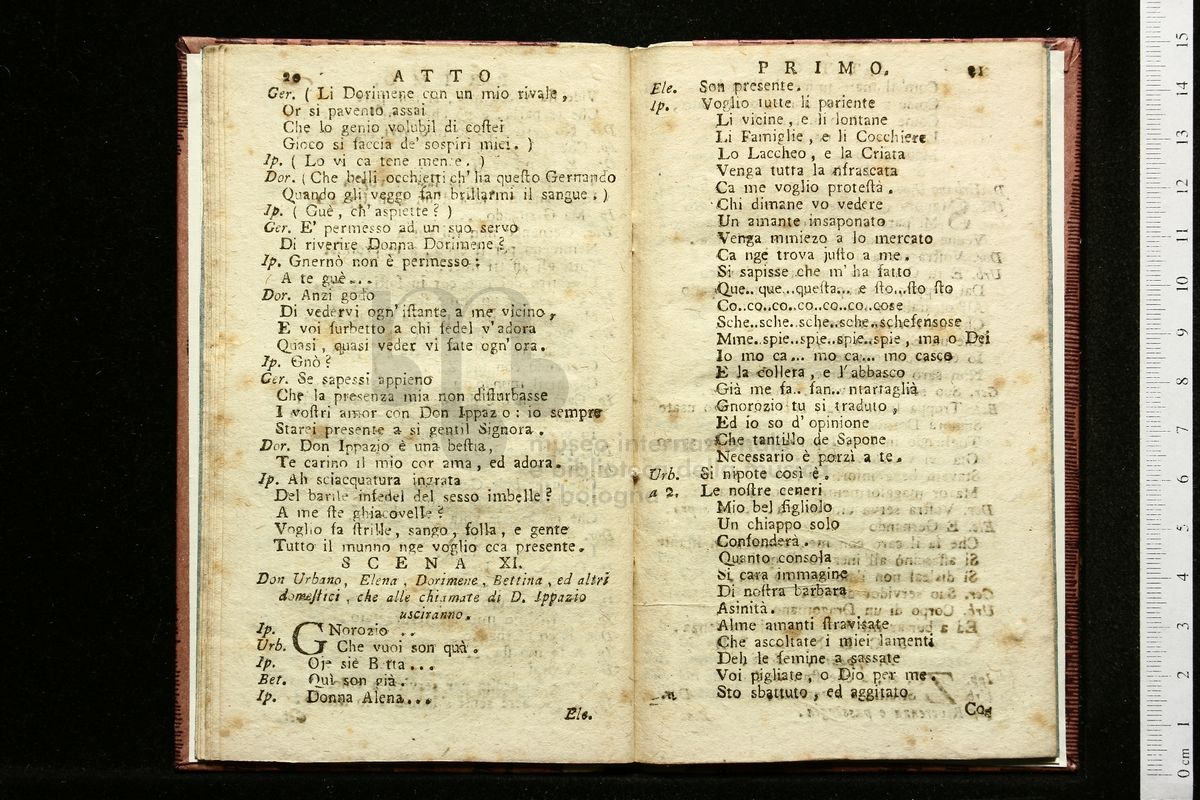 20 ATTO
Ger. ( Li Dorimene con un mio rivale,
Or si pavento assai
Che lo genio volubil di costei
Gioco si faccia de' sospiri miei. )
Ip. ( Lo vi ca tene mente. )
Dor. ( Che belli occhietti ch' ha questo Gernando
Quando gli veggo fan brillarmi il sangue. )
Ip. ( Guè, ch' aspiette? )
Ger. E' permesso ad un suo servo
Di riverire Donna Dorimene?
Ip. Gnernò non è permesso:
A te guè...
Dor. Anzi godo
Di vedervi ogn' istante a me vicino,
E voi furbetto a chi fedel v' adora
Quasi, quasi veder vi fate ogn' ora.
Ip. Gnò?
Ger. Se sapessi appieno
Che la presenza mia non disturbasse
I vostri amor con Don Ippazo: io sempre
Starei presente a si gentil Signora.
Dor. Don Ippazio è una bestia,
Te carino il mio cor ama, ed adora.
Ip. Ah sciacquatura ingrata
Del barile infedel del sesso imbelle?
A me ste ghiacovelle?
Voglio fa strille, sango, folla, e gente
Tutto il munno nge voglio cca presente.
SCENA XI.
Don Urbano, Elena, Dorimene, Bettina, ed altri
domestici, che alle chiamate di D. Ippazio
usciranno.
Ip. GNorozio ..
Urb. Che vuoi son quà.
Ip. Oje siè B tta...
Bet. Quì son già.
Ip. Donna Alena...
Ele.
PRIMO. 21
Ele. Son presente.
Ip. Voglio tutte li pariente
Li vicine, e li lontane
Li Famiglie, e li Cocchiere
Lo Laccheo, e la Criata
Venga tutta la nfrascata
Ca me voglio protestà.
Chi dimane vo vedere
Un amante insaponato
Venga mmiezo a lo mercato
Ca nge trova justo a me.
Si sapisse che m' ha fatto
Que.. que...questa... e sto...sto sto
Co..co..co..co..co..co..cose
Sche..sche..sche..sche..schefensose
Mme..spie..spie..spie..spie, ma o Dei
Io mo ca... mo ca... mo casco
E la collera, e l'abbasco
Già me fa.. fan.. ntartaglià
Gnorozio tu si traduto,
Ed io so d' opinione
Che tantillo de Sapone
Necessario è porzì a te.
Urb. Si nipote così è.
a 2. Le nostre ceneri
Mio bel figliolo
Un chiappo solo
Confonderà.
Quanto consola
Si cara immagine
Di nostra barbara
Asinità.
Alme amanti stravisate
Che ascoltate i miei lamenti
Deh le femine a sassate
Voi pigliate, o Dio per me.
Sto sbattuto, ed aggitato
Co-
museo internazionale
biblioteca della musica
bologna